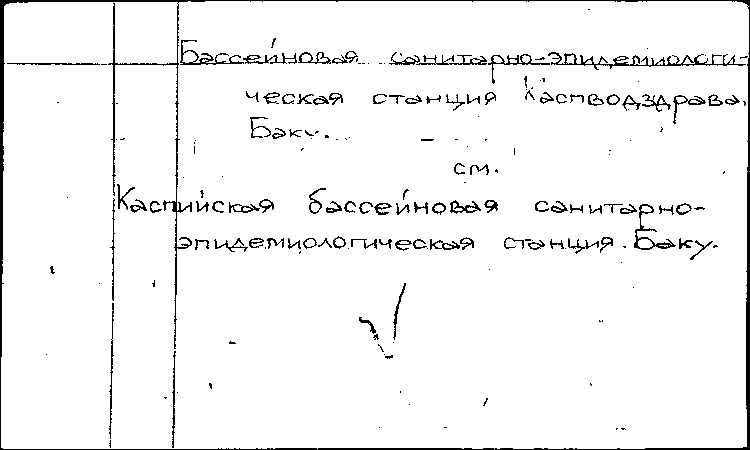 Бассейновая санитарно-эпидемиологи-
ческая станция Каспводздрава.
Баку.
см.
Каспийская бассейновая санитарно-
эпидемиологическая станция. Баку.